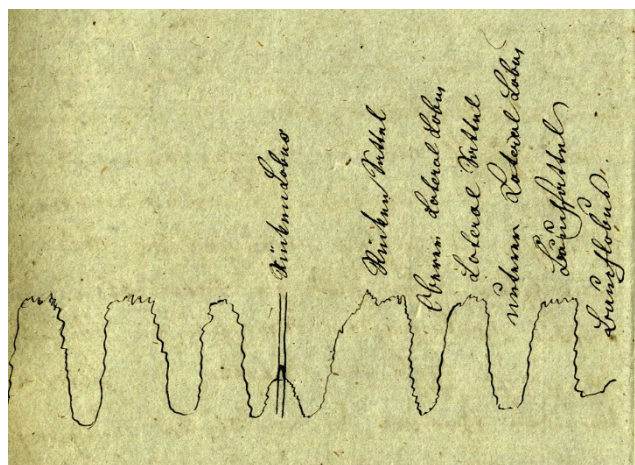 Rücken Lobus
Rücken Sattel
Oberer Lateral Lobus
Lateral Sattel
unterer Lateral Lobus
Bauchsattel
Bauchlobus